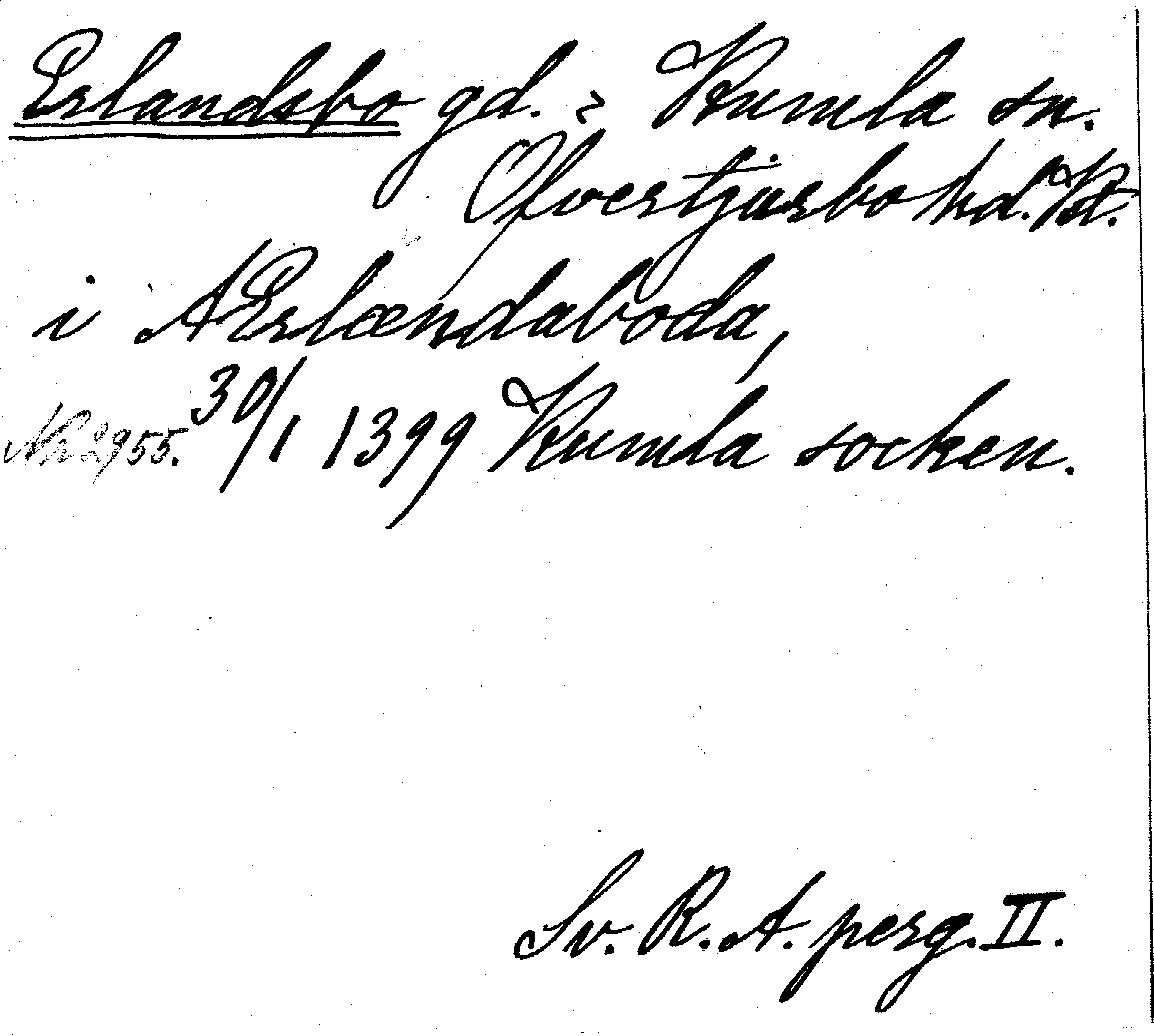 Erlandsbo gd. ? Kumla sn.
Ofvertjurbo hd. Vst.
i AErlændaboda,
Nr 2955. 30/1 1399 Kumla socken.
Sv. R. A. perg. II.